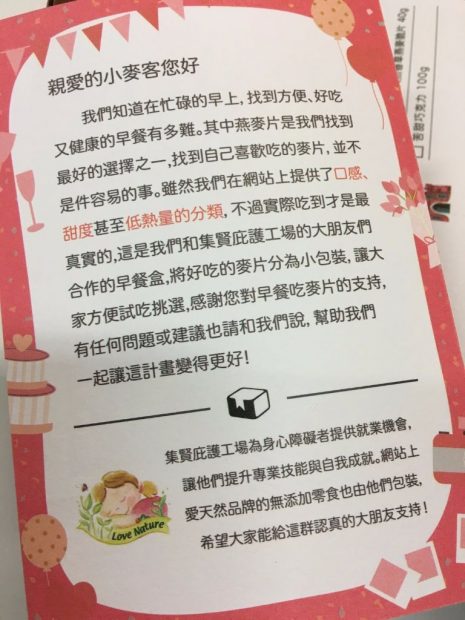 親愛的小麥客您好
我們知道在忙碌的早上, 找到方便、好吃
又健康的早餐有多難。其中燕麥片是我們找到
最好的選擇之一, 找到自己喜歡吃的麥片, 並不
是件容易的事。雖然我們在網站上提供了口感、
甜度甚至低熱量的分類, 不過實際吃到才是最
真實的, 這是我們和集賢庇護工場的大朋友們
合作的早餐盒, 將好吃的麥片分為小包裝, 讓大
家方便試吃挑選, 感謝您對早餐吃麥片的支持,
有任何問題或建議也請和我們說, 幫助我們
一起讓這計畫變得更好!
集賢庇護工場為身心障礙者提供就業機會,
讓他們提升專業技能與自我成就。網站上
愛天然品牌的無添加零食也由他們包裝,
希望大家能給這群認真的大朋友支持!
Love Nature
燕麥脆片 40g
苦甜巧克力 100g